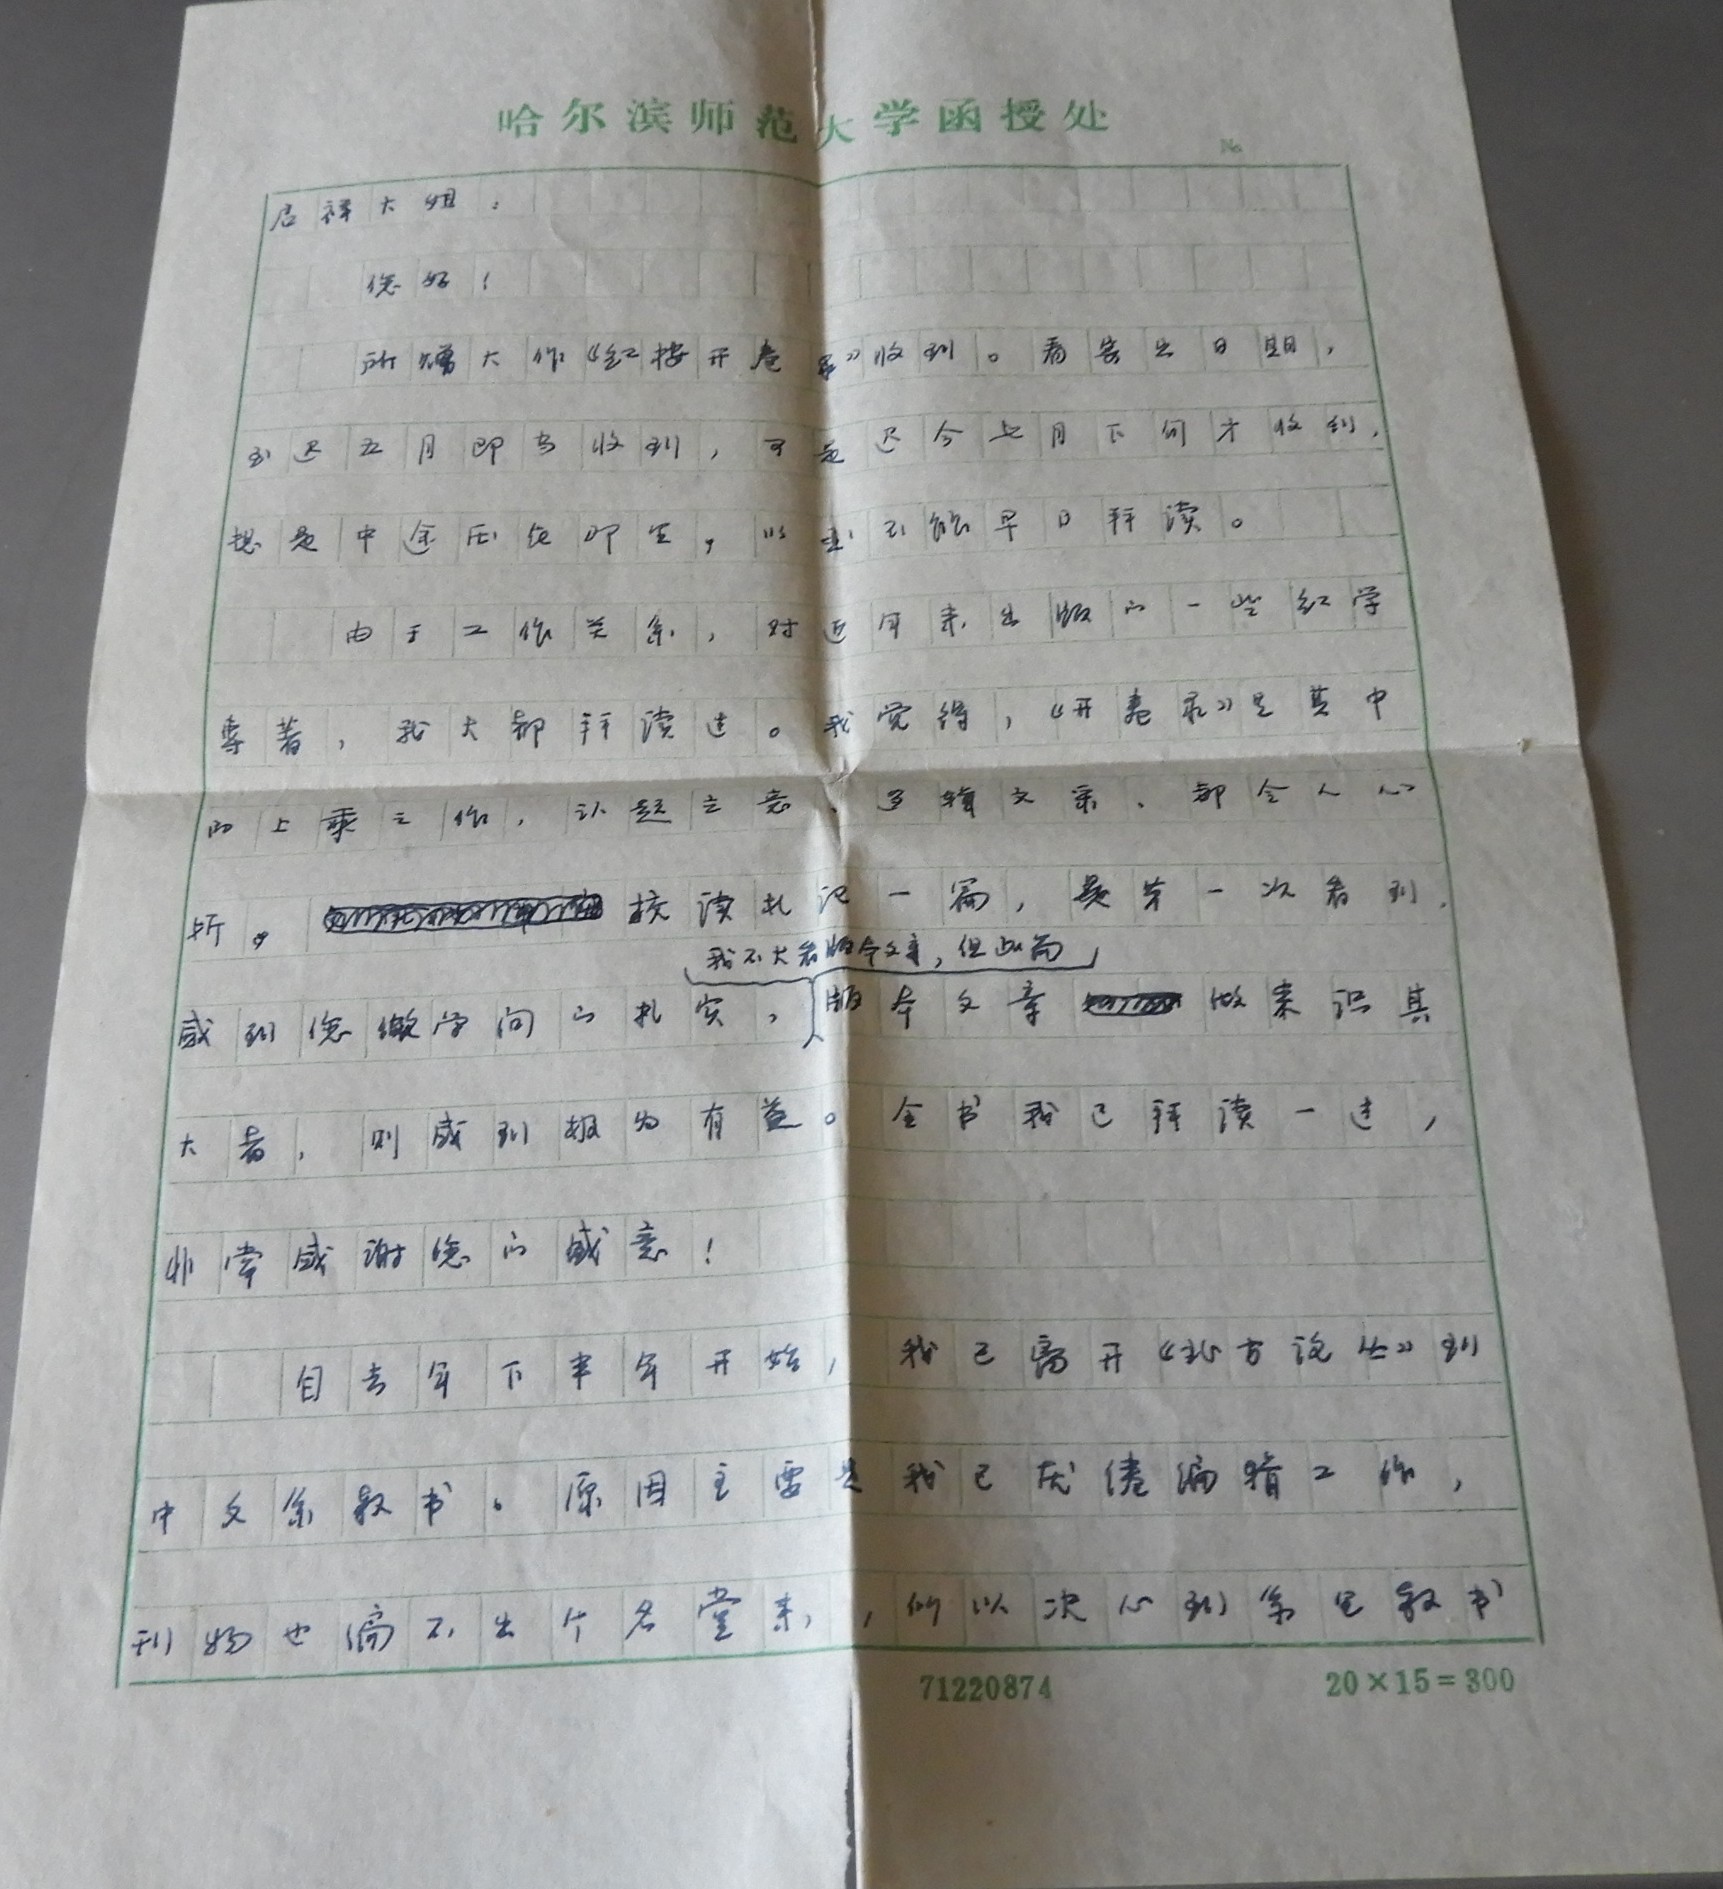 哈尔滨师范大学函授处
№
启祥大姐：
您好！
所赠大作《红楼开卷录》收到。看寄出日期，
至迟五月即当收到，可是迟今七月下旬才收到，
想是中途压在那里，以至不能早日拜读。
由于工作关系，对近年来出版的一些红学
专著，我大都拜读过。我觉得，《开卷录》是其中
的上乘之作，认题立意、逻辑文采、都令人心
折。校读札记一篇，是第一次看到，
我不大看版本文章，但此篇
感到您做学问的扎实，版本文章做来识其
大者，则感到极为有益。全书我已拜读一过，
非常感谢您的盛意！
自去年下半年开始，我已离开《北方论丛》到
中文系教书。原因主要是我已厌倦编辑工作，
刊物也编不出个名堂来，所以决心到系里教书
71220874
20×15=300